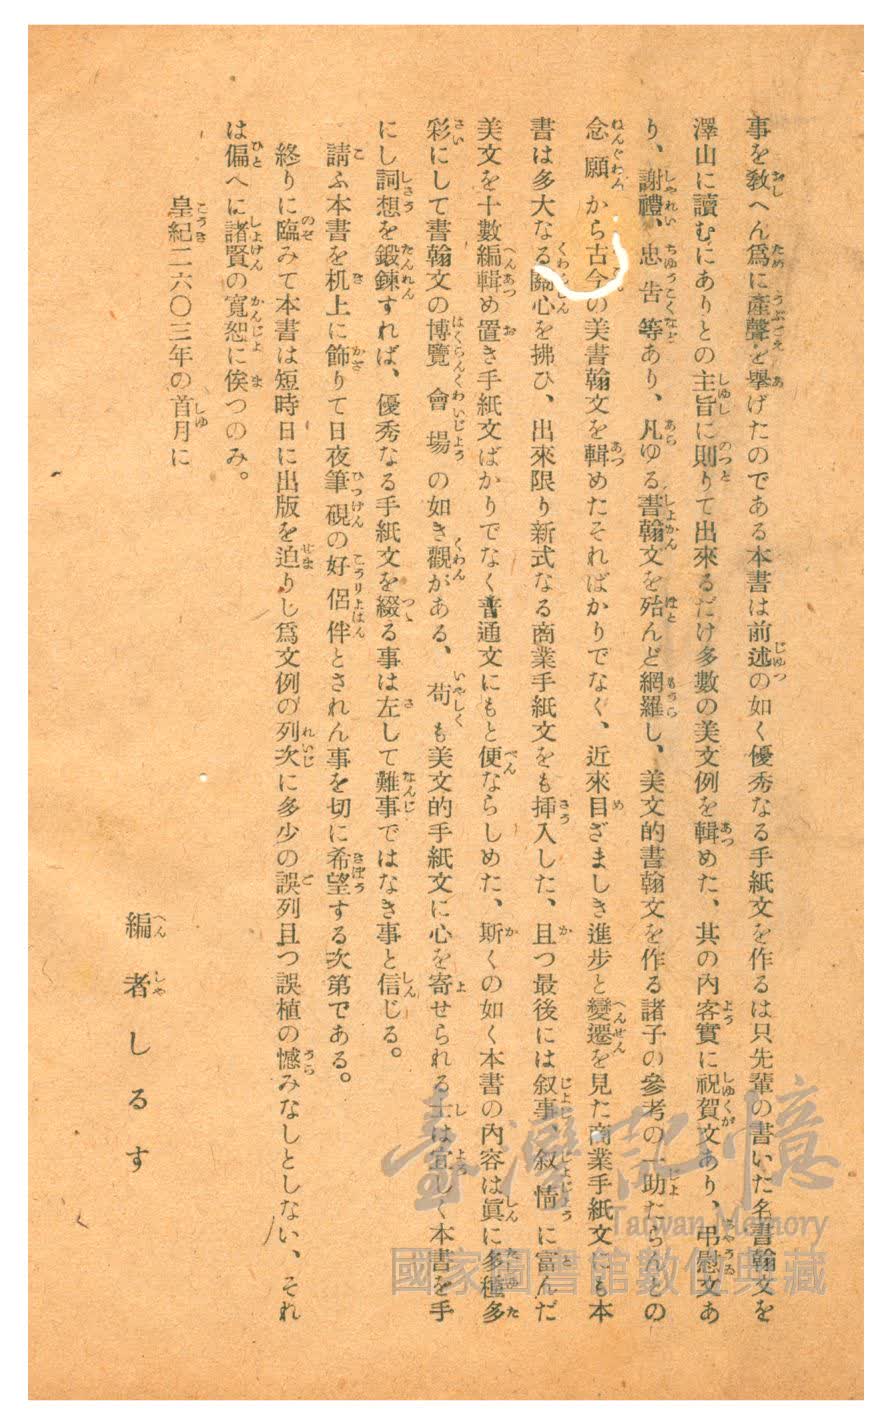 事を敎へん爲に產聲を擧げたのである本書は前述の如く優秀なる手紙文を作るは只先輩の書いた名書翰文を
澤山に讀むにありとの主旨に則りて出來るだけ多數の美文例を輯めた、其の內容實に祝賀文あり、弔慰文あ
り、謝禮、忠告等あり、凡ゆる書翰文を殆んど網羅し、美文的書翰文を作る諸子の參考の一助たらんとの
念願から古今の美書翰文を輯めたそればかりでなく、近來目ざましき進步と變遷を見た商業手紙文にも本
書は多大なる關心を拂ひ、出來限り新式なる商業手紙文をも揷入した、且つ最後には叙事、叙情に富んだ
美文を十數編輯め置き手紙文ばかりでなく普通文にもと便ならしめた、斯くの如く本書の內容は眞に多種多
彩にして書翰文の博覽會場の如き觀がある、苟も美文的手紙文に心を寄せられる士は宜しく本書を手
にし詞想を鍛鍊すれば、優秀なる手紙文を綴る事は左して難事ではなき事と信じる。
請ふ本書を机上に飾りて日夜筆硯の好侶伴とされん事を切に希望する次第である。
終りに臨みて本書は短時日に出版を迫りし爲文例の列次に多少の誤列且つ誤植の憾みなしとしない、それ
は偏へに諸賢の寬恕に俟つのみ。
皇紀二六〇三年の首月に
編者しるす
臺灣記憶
Taiwan Memory
國家圖書館數位典藏